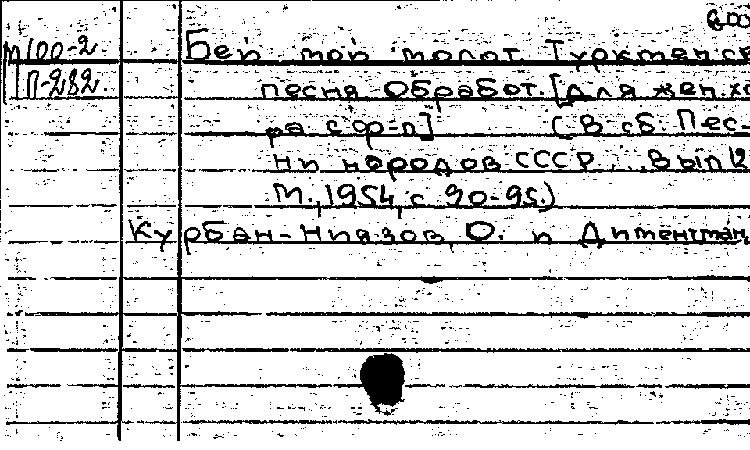 М100-2
П-282.
Бей, мой молот. Туркменск
песня. Обработ. [Для жен. хо
ра с ф-п] (В сб. Пес-
ни народов СССР ... Вып 12
М., 1954, с 90-95.)
Курбан-Ниязов, О. и